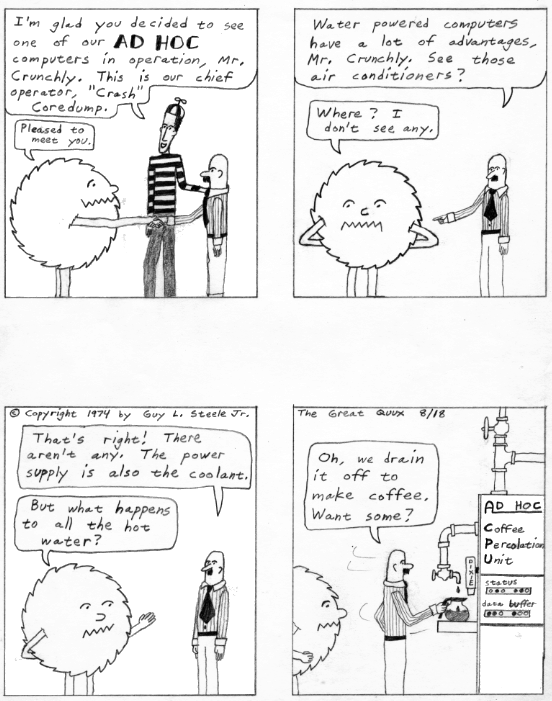 I'm glad you decided to see
one of our AD HOC
computers in operation, Mr.
Crunchly. This is our chief
operator, "Crash"
Coredump.
Pleased to
meet you.
Water powered computers
have a lot of advantages,
Mr. Crunchly. See those
air conditioners?
Where? I
don't see any.
© Copyright 1974 by Guy L. Steele Jr.
That's right! There
aren't any. The power
supply is also the coolant.
But what happens
to all the hot
water?
The Great Quux 8/18
Oh, we drain
it off to
make coffee.
Want some?
DIXIE
AD HOC
Coffee
Percolation
Unit
status
data buffer